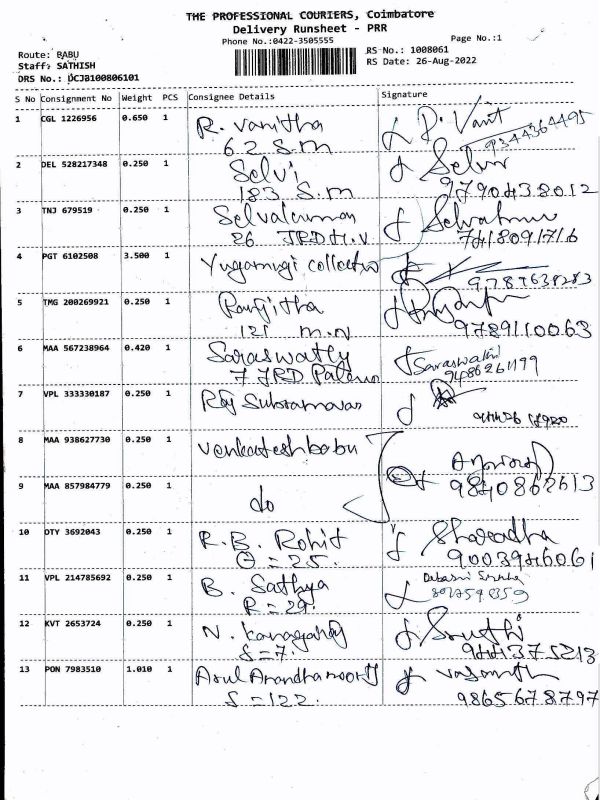 THE PROFESSIONAL COURIERS, Coimbatore
Delivery Runsheet - PRR
Phone No.:0422-3505555
Page No.:1
Route: BABU
Staff: SATHISH
DRS No.: DCJB100806101
RS No.: 1008061
RS Date: 26-Aug-2022
S No Consignment No Weight PCS Consignee Details Signature
1 CGL 1226956 0.650 1 R. Vanitha
62 S.M 9344364495
2 DEL 528217348 0.250 1 Selvi Selvi
183 S.M 9790438012
3 TNJ 679519 0.250 1 Selvakumar
26 JRD 7418091716
4 PGT 6102508 3.500 1 9787638283
5 TMG 200269921 0.250 1 Ranjitha
121 M.N 9789110063
6 MAA 567238964 0.420 1 Saraswathy Saraswathi
7 JRD 9486261199
7 VPL 333330187 0.250 1 Raj
8 MAA 938627730 0.250 1 Venkateshbabu
9 MAA 857984779 0.250 1 do 9840862613
10 OTY 3692043 0.250 1 R.B. Rohit Sharadha
= 25. 9003946061
11 VPL 214785692 0.250 1 B. Sathya
R = 29.
12 KVT 2653724 0.250 1 N. Sruthi
S = 7 944375213
13 PON 7983510 1.010 1 Arul Anandhamoorthy Vasanth
S = 122. 9865678797